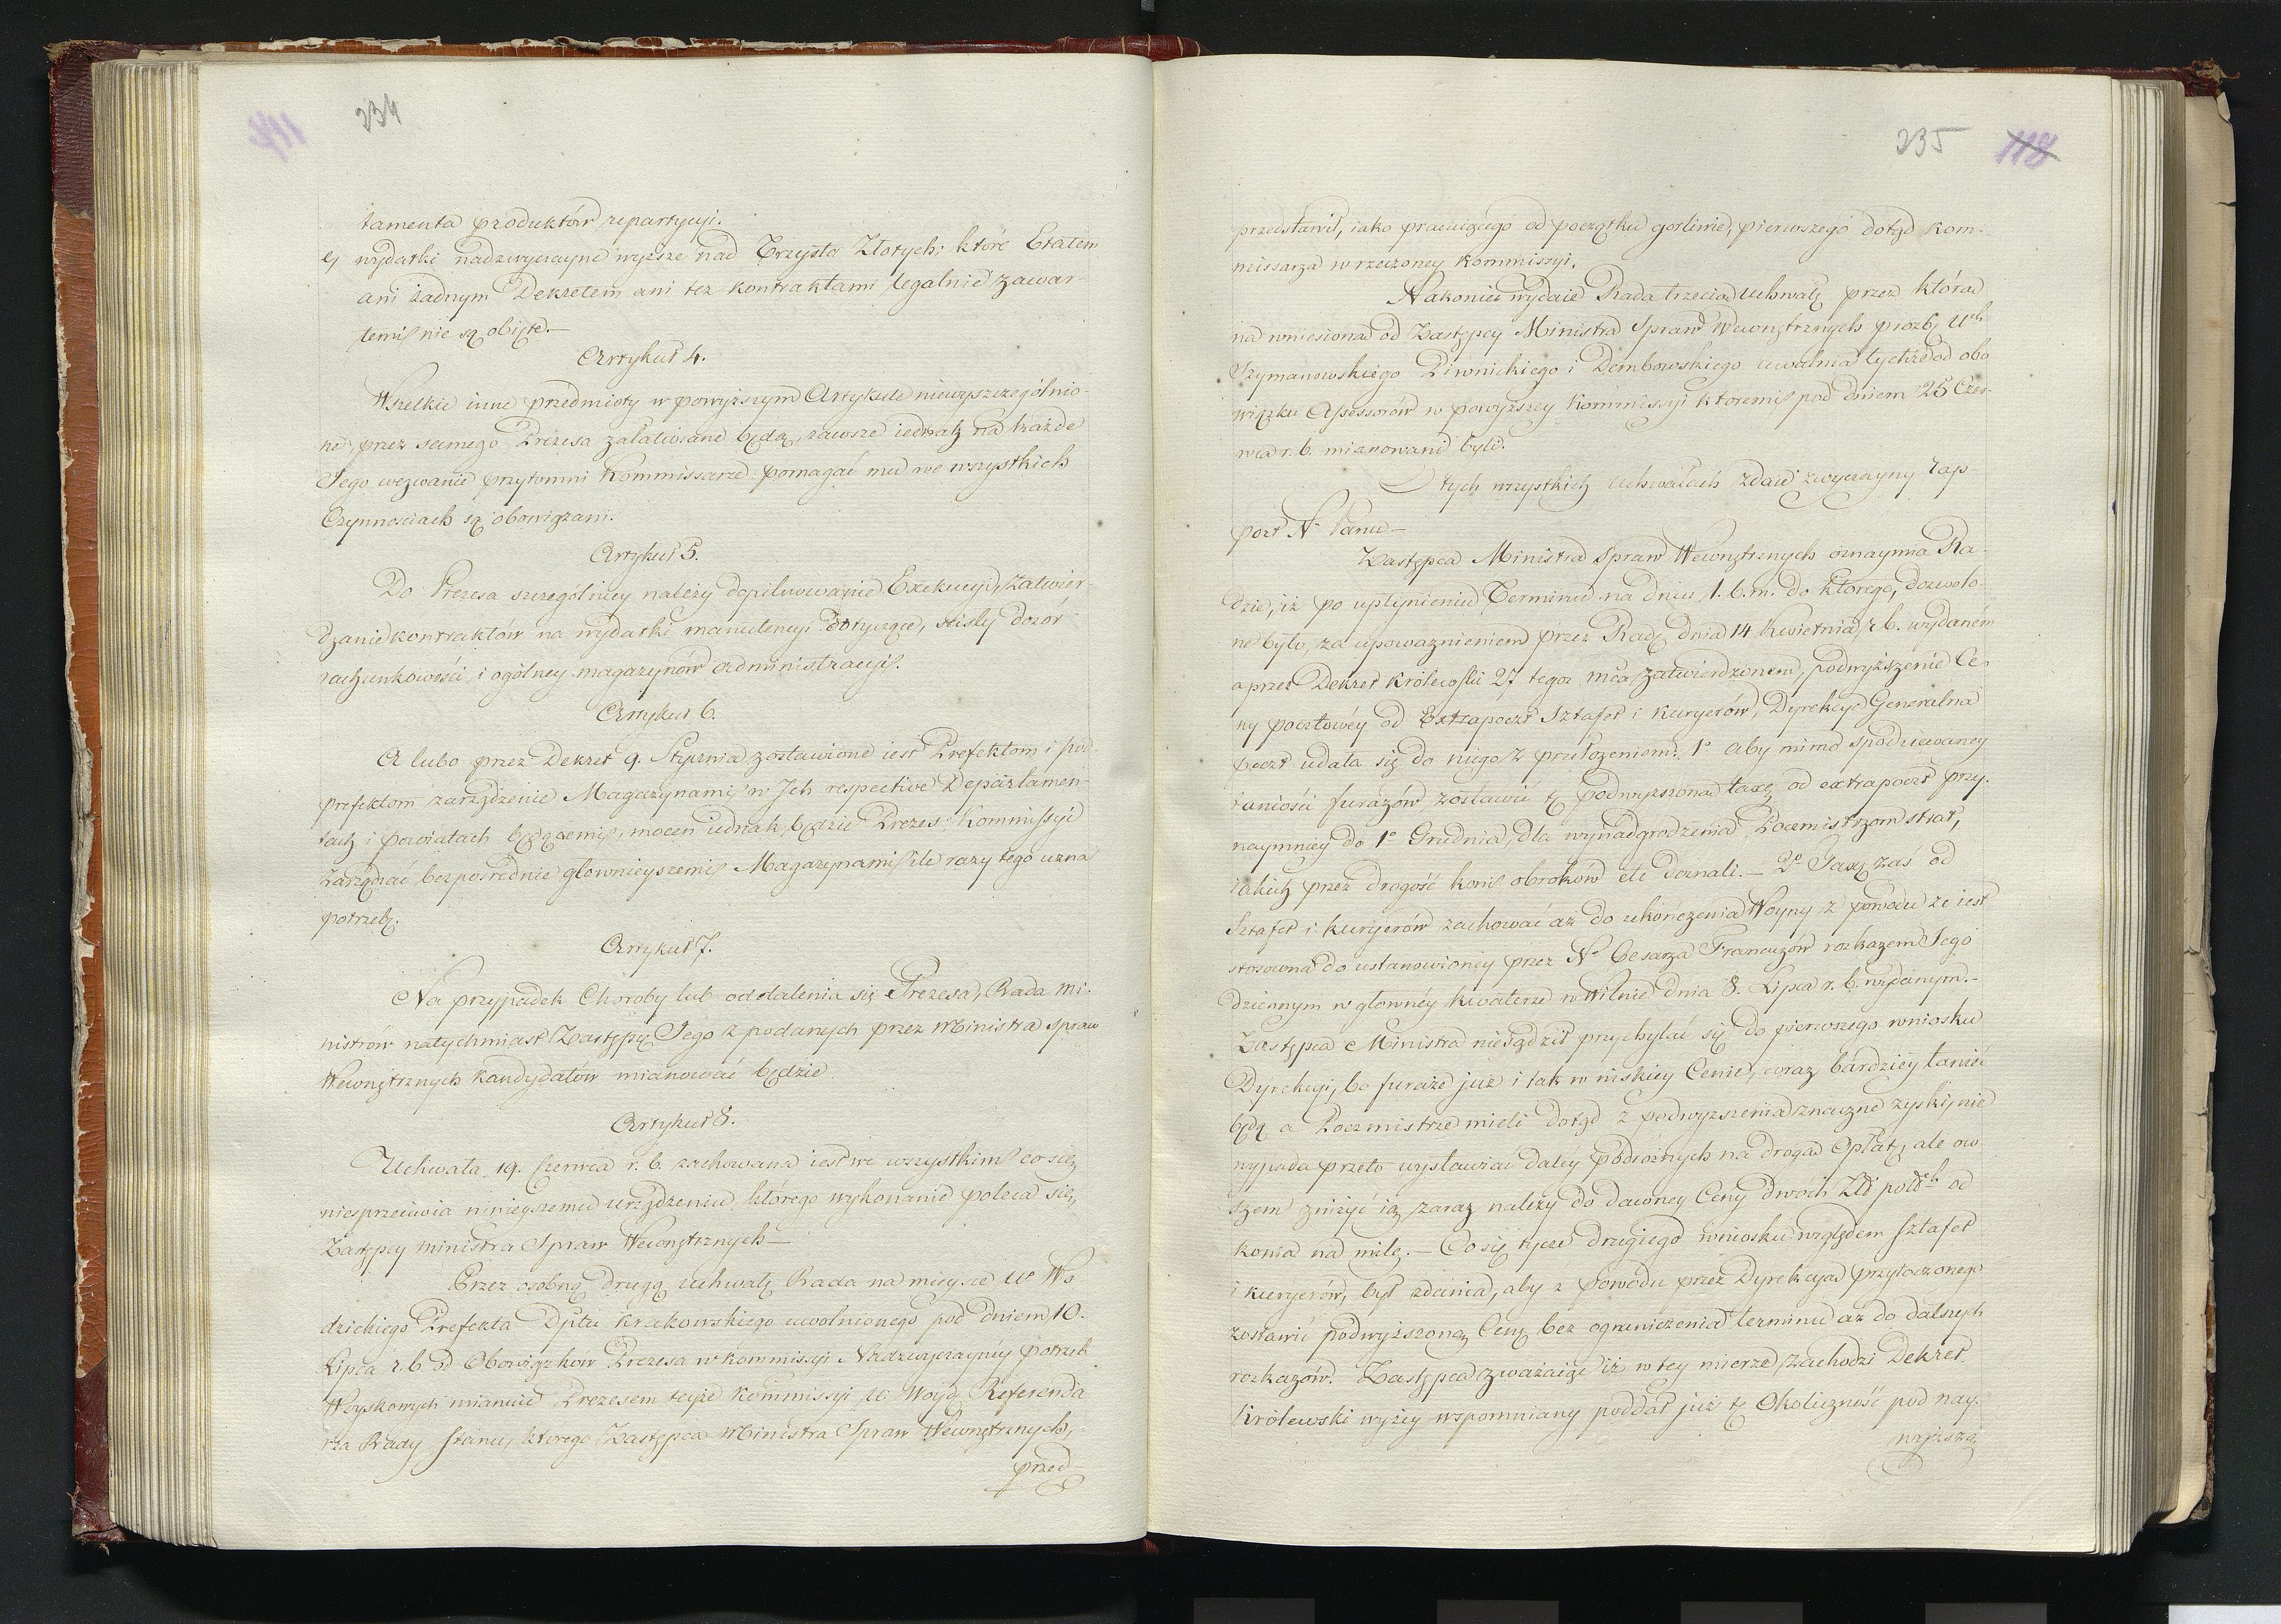 234
tamenta produktów repartycyi.
e, wydatki nadzwyczayne wyższe nad Trzysta Złotych; które Etatem
ani żadnym Dekretem ani też kontraktami legalnie zawar-
temi nie są objęte.—
Artykuł 4.
Wszelkie inne przedmioty w powyższym Artykule niewyszczególnio-
ne, przez samego Prezesa załatwiane będą, zawsze iednak na każde
Jego wezwanie przytomni Kommissarze pomagać mu we wszystkich
Czynnościach są obowiązani.
Artykuł 5.
Do Prezesa szczególniey należy dopilnowanie Exekucyi, zatwier-
dzanie kontraktów na wydatki manutencyi dotyczące, ścisły dozór
rachunkowości, i ogólney magazynów administracyi.
Artykuł 6.
A lubo przez Dekret 9. Stycznia zostawione iest Prefektom i pod-
prefektom zarządzenie Magazynami w Ich respective Departamen-
tach i powiatach będącemi, mocen iednak będzie Prezes Kommissyi
zarządzać bezpośrednie głownieyszemi Magazynami ile razy tego uzna
potrzebę.
Artykuł 7.
Na przypadek Choroby lub oddalenia się Prezesa, Rada Mi-
nistrów natychmiast Zastępcę Jego z podanych przez Ministra spraw
Wewnętrznych kandydatów mianować będzie
Artykuł 8.
Uchwała 19. Czerwca r. b. zachowana iest we wszystkim co się
niesprzeciwia ninieyszemu urządzeniu, którego wykonanie poleca się,
Zastępcy Ministra Spraw Wewnętrznych—
Przez osobną drugą uchwałę Rada na mieysce Ur Wo
dzickiego Prefekta Dptu Krakowskiego uwolnionego pod dniem 10.
Lipca r. b od Obowiązków Prezesa w Kommissyi Nadzwyczayney potrzeb
Woyskowych mianuie Prezesem teyże Kommissyi Ur Woydę Referenda
rza Rady stanu, którego Zastępca Ministra Spraw Wewnętrznych,
przed-
235 118
przedstawił, iako pracuiącego od początku gorliwie, pierwszego dotąd Kom-
missarza w rzeczoney Kommissyi.
Nakoniec wydaie Rada trzecią Uchwałę przez którą
na wniesioną od Zastępcy Ministra Spraw Wewnętrznych prozbę Uch
Szymanowskiego Piwnickiego i Dembowskiego uwalnia tychże od obo
wiązku Assessorów w powyższey Kommissyi ktoremi pod dniem 25 Czer-
wca r. b. mianowani byli.
O tych wszystkich Uchwałach zdaie zwyczayny rap-
port N. Panu—
Zastępca Ministra Spraw Wewnętrznych oznaymia Ra-
dzie, iż po upłynieniu Terminu na dniu 1. b. m. do którego, dozwolo-
ne było, za upoważnieniem przez Radę dnia 14 Kwietnia r b. wydaném
a przez Dekret Królewski 27 tegoż mca zatwierdzonem, podwyższenie Ce-
ny pocztowéy od Extrapoczt Sztafet i Kuryerów, Dyrekcya Generalna
poczt udała się do niego z przełożeniem: 1o aby mimo spodziewaney
taniości furażów zostawić tę podwyższoną taxę od extrapoczt przy-
naymniey do 1o Grudnia, dla wynadgrodzenia Poczmistrzom strat,
iakich przez drogość koni obroków etc doznali.— 2o Taxę zaś od
Sztafet i kuryerów zachować aż do ukończenia Woyny z powodu że iest
stosowna do ustanowioney przez No Cesarza Francuzów rozkazem Jego
dziennym w główney kwaterze w Wilnie dnia 8. Lipca r. b. wydanym.—
Zastępca Ministra niesądził przychylać się do pierwszego wniosku
Dyrekcyi, bo furaże już i tak w niskiey Cenie, coraz bardziey tanie
będą a Poczmistrze mieli dotąd z podwyższenia znaczne zyski, nie
wypada przeto wystawiać daley podróżnych na drogą Opłatę, ale ow
szem zniżyć ią zaraz należy do dawney Ceny dwóch Złł polsch od
konia na milę.— Co się tycze drugiego wniosku względem sztafet
i kuryerów, był zdania, aby z powodu przez Dyrekcyą przytoczonego
zostawić podwyższoną Cenę bez ograniczenia terminu aż do dalszych
rozkazów. Zastępca zważaiąc iż w tey mierze zachodzi Dekret
Królewski wyżey wspomniany poddał już tę Okoliczność pod nay-
wyższą